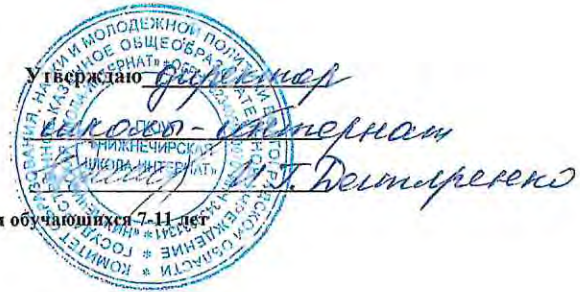 Утверждаю директор
школы-интернат
И.Т. Дегтяренко
обучающихся 7-11 лет
КОМИТЕТ ОБРАЗОВАНИЯ, НАУКИ И МОЛОДЕЖНОЙ ПОЛИТИКИ ВОЛГОГРАДСКОЙ ОБЛАСТИ
КАЗЕННОЕ ОБЩЕОБРАЗОВАТЕЛЬНОЕ УЧРЕЖДЕНИЕ
НИЖНЕЧИРСКАЯ
ШКОЛА-ИНТЕРНАТ»